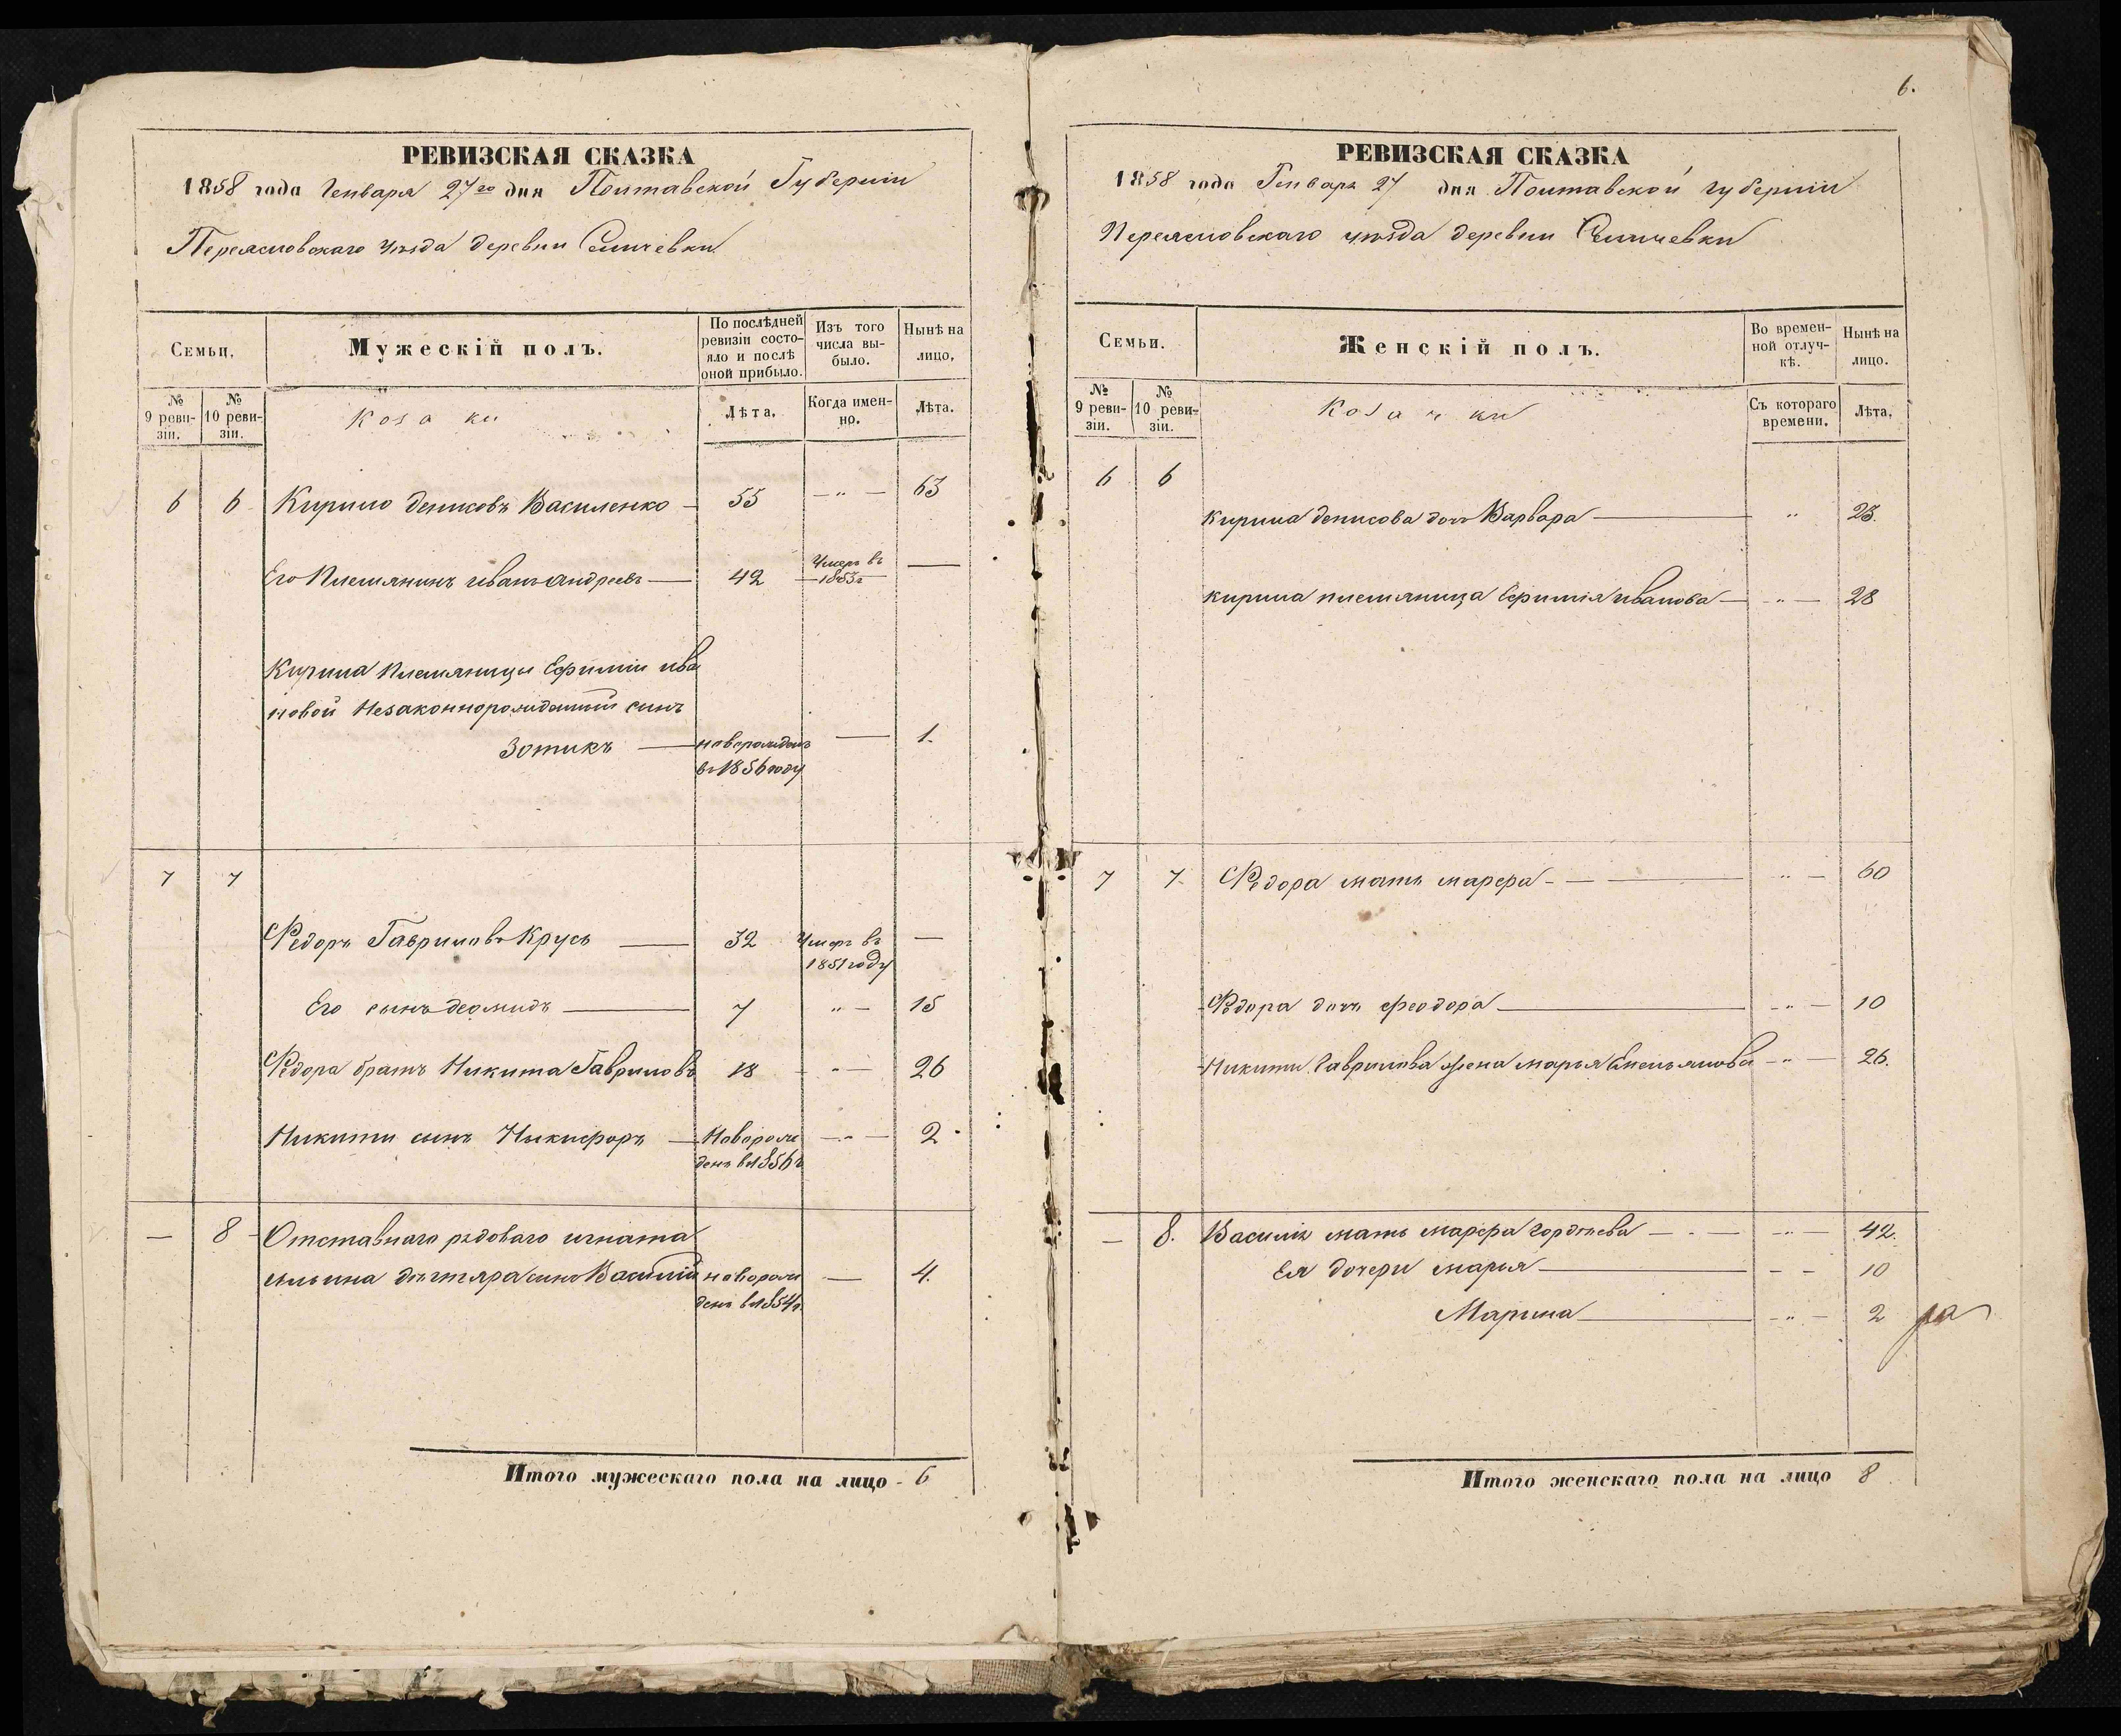 6.
РЕВИЗСКАЯ СКАЗКА
1858 года Генваря 27го дня Полтавской Губернии
Переясловскаго уѣзда деревни
Семьи,
Мужескій полъ.
По послѣдней ревизіи состояло и послѣ оной прибыло.
Изъ того числа выбыло.
Нынѣ на лицо,
№ 9 ревизіи.
№ 10 ревизіи.
Козаки
Лѣта,
Когда именно.
Лѣта.
6 6 Кирило денисовъ Василенко — 55 — " — 63
Его Племянникъ иванъ андреевъ — 42 Умеръ въ 1853г —
Кирила Племяницы Ефиміи ива
новой Незаконнорожденный сынъ
Зотикъ — новорожденъ — 1.
въ 1856 году
7 7
Федоръ Гавриловъ Крусь — 32 Умеръ въ —
1851 году
Его сынъ деомидъ — 7 " — 15
Федора братъ Никита Гавриловъ 18 - " — 26
Никиты сынъ Никифоръ — Наворож — " — 2
денъ в 1856 г
— 8 Отставнаго рядоваго игната
ильина дѣгтяра сынъ Василій новорож — 4.
денъ в 1854г
Итого мужескаго пола на лицо - 6
РЕВИЗСКАЯ СКАЗКА
1858 года Генваря 27 дня Полтавской губерніи
Переясловскаго уѣзда деревни
Семьи.
Женскій полъ.
Во временной отлучкѣ.
Нынѣ на лицо.
№ 9 ревизіи.
№ 10 ревизіи.
Козачки
Съ котораго времени.
Лѣта,
6 6
Кирила денисова дочь Варвара — "
кирила племяница Ефимія иванова — " — 28
7 7. Федора мать марфа — " — 60
Федора дочь феодора — " — 10
Никиты Гаврилова жена марья Емельянова — " — 26.
— 8. Василія мать марфа гордѣева — " — 42.
Ея дочери марья — — — 10
Марина — " — 2
Итого женскаго пола на лицо 8